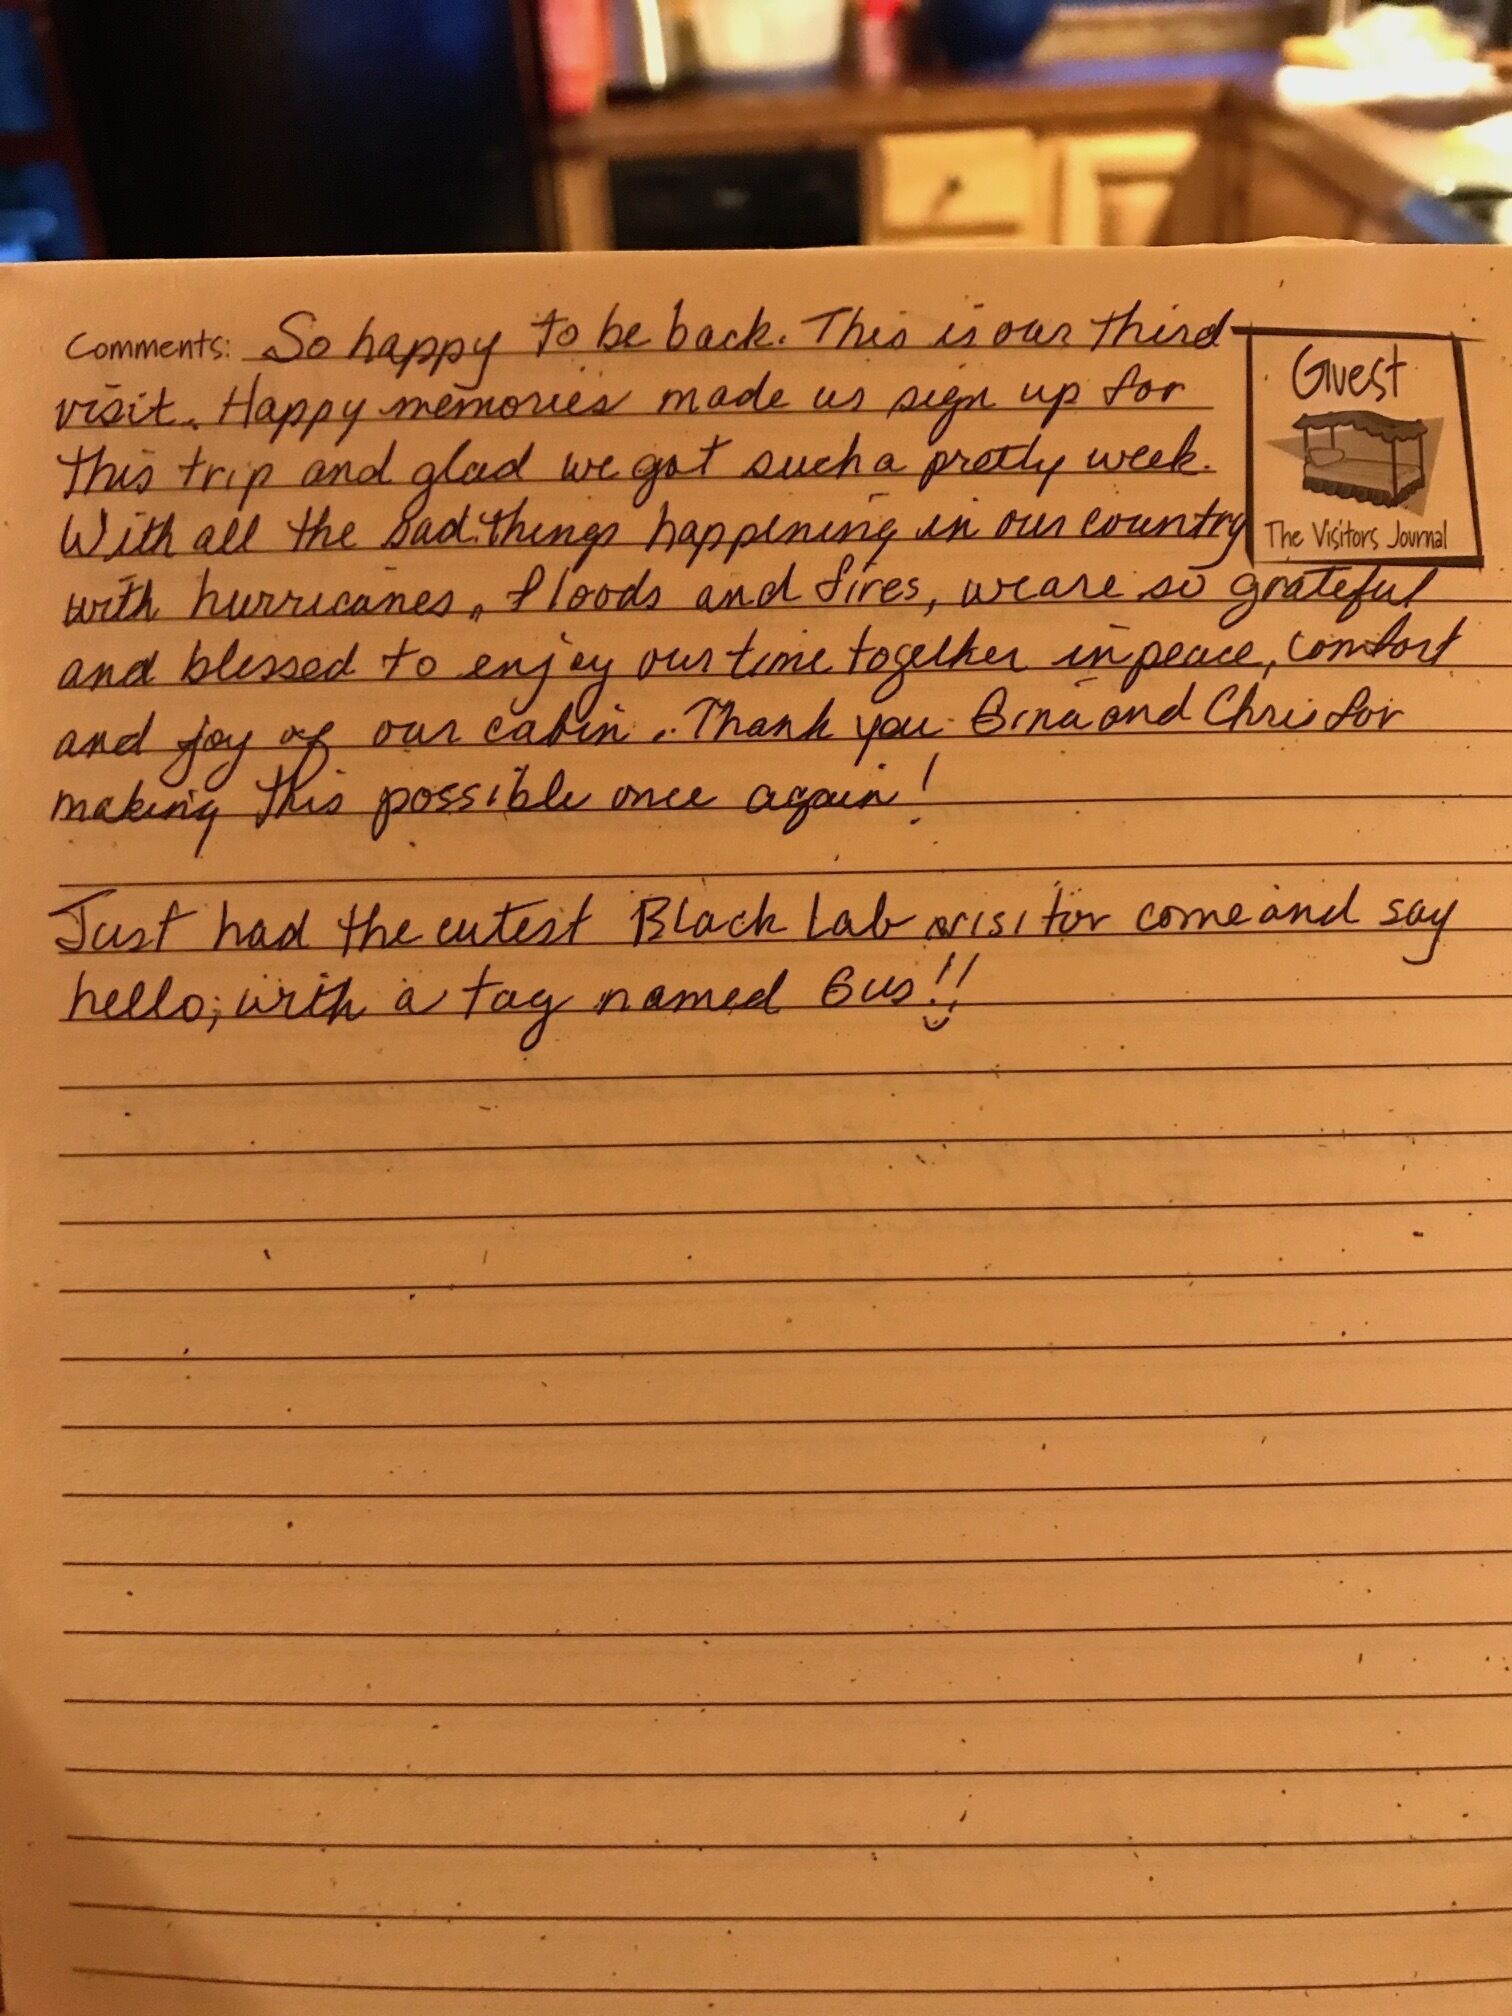 Comments: So happy to be back. This is our third
visit. Happy memories made us sign up for
this trip and glad we got such a pretty week.
With all the sad things happening in our country
with hurricanes, floods and fires, we are so grateful
and blessed to enjoy our time together in peace, comfort
and joy of our cabin. Thank you Gina and Chris for
making this possible once again!
Just had the cutest Black Lab visitor come and say
hello; with a tag named Gus!!
Guest
The Visitors Journal